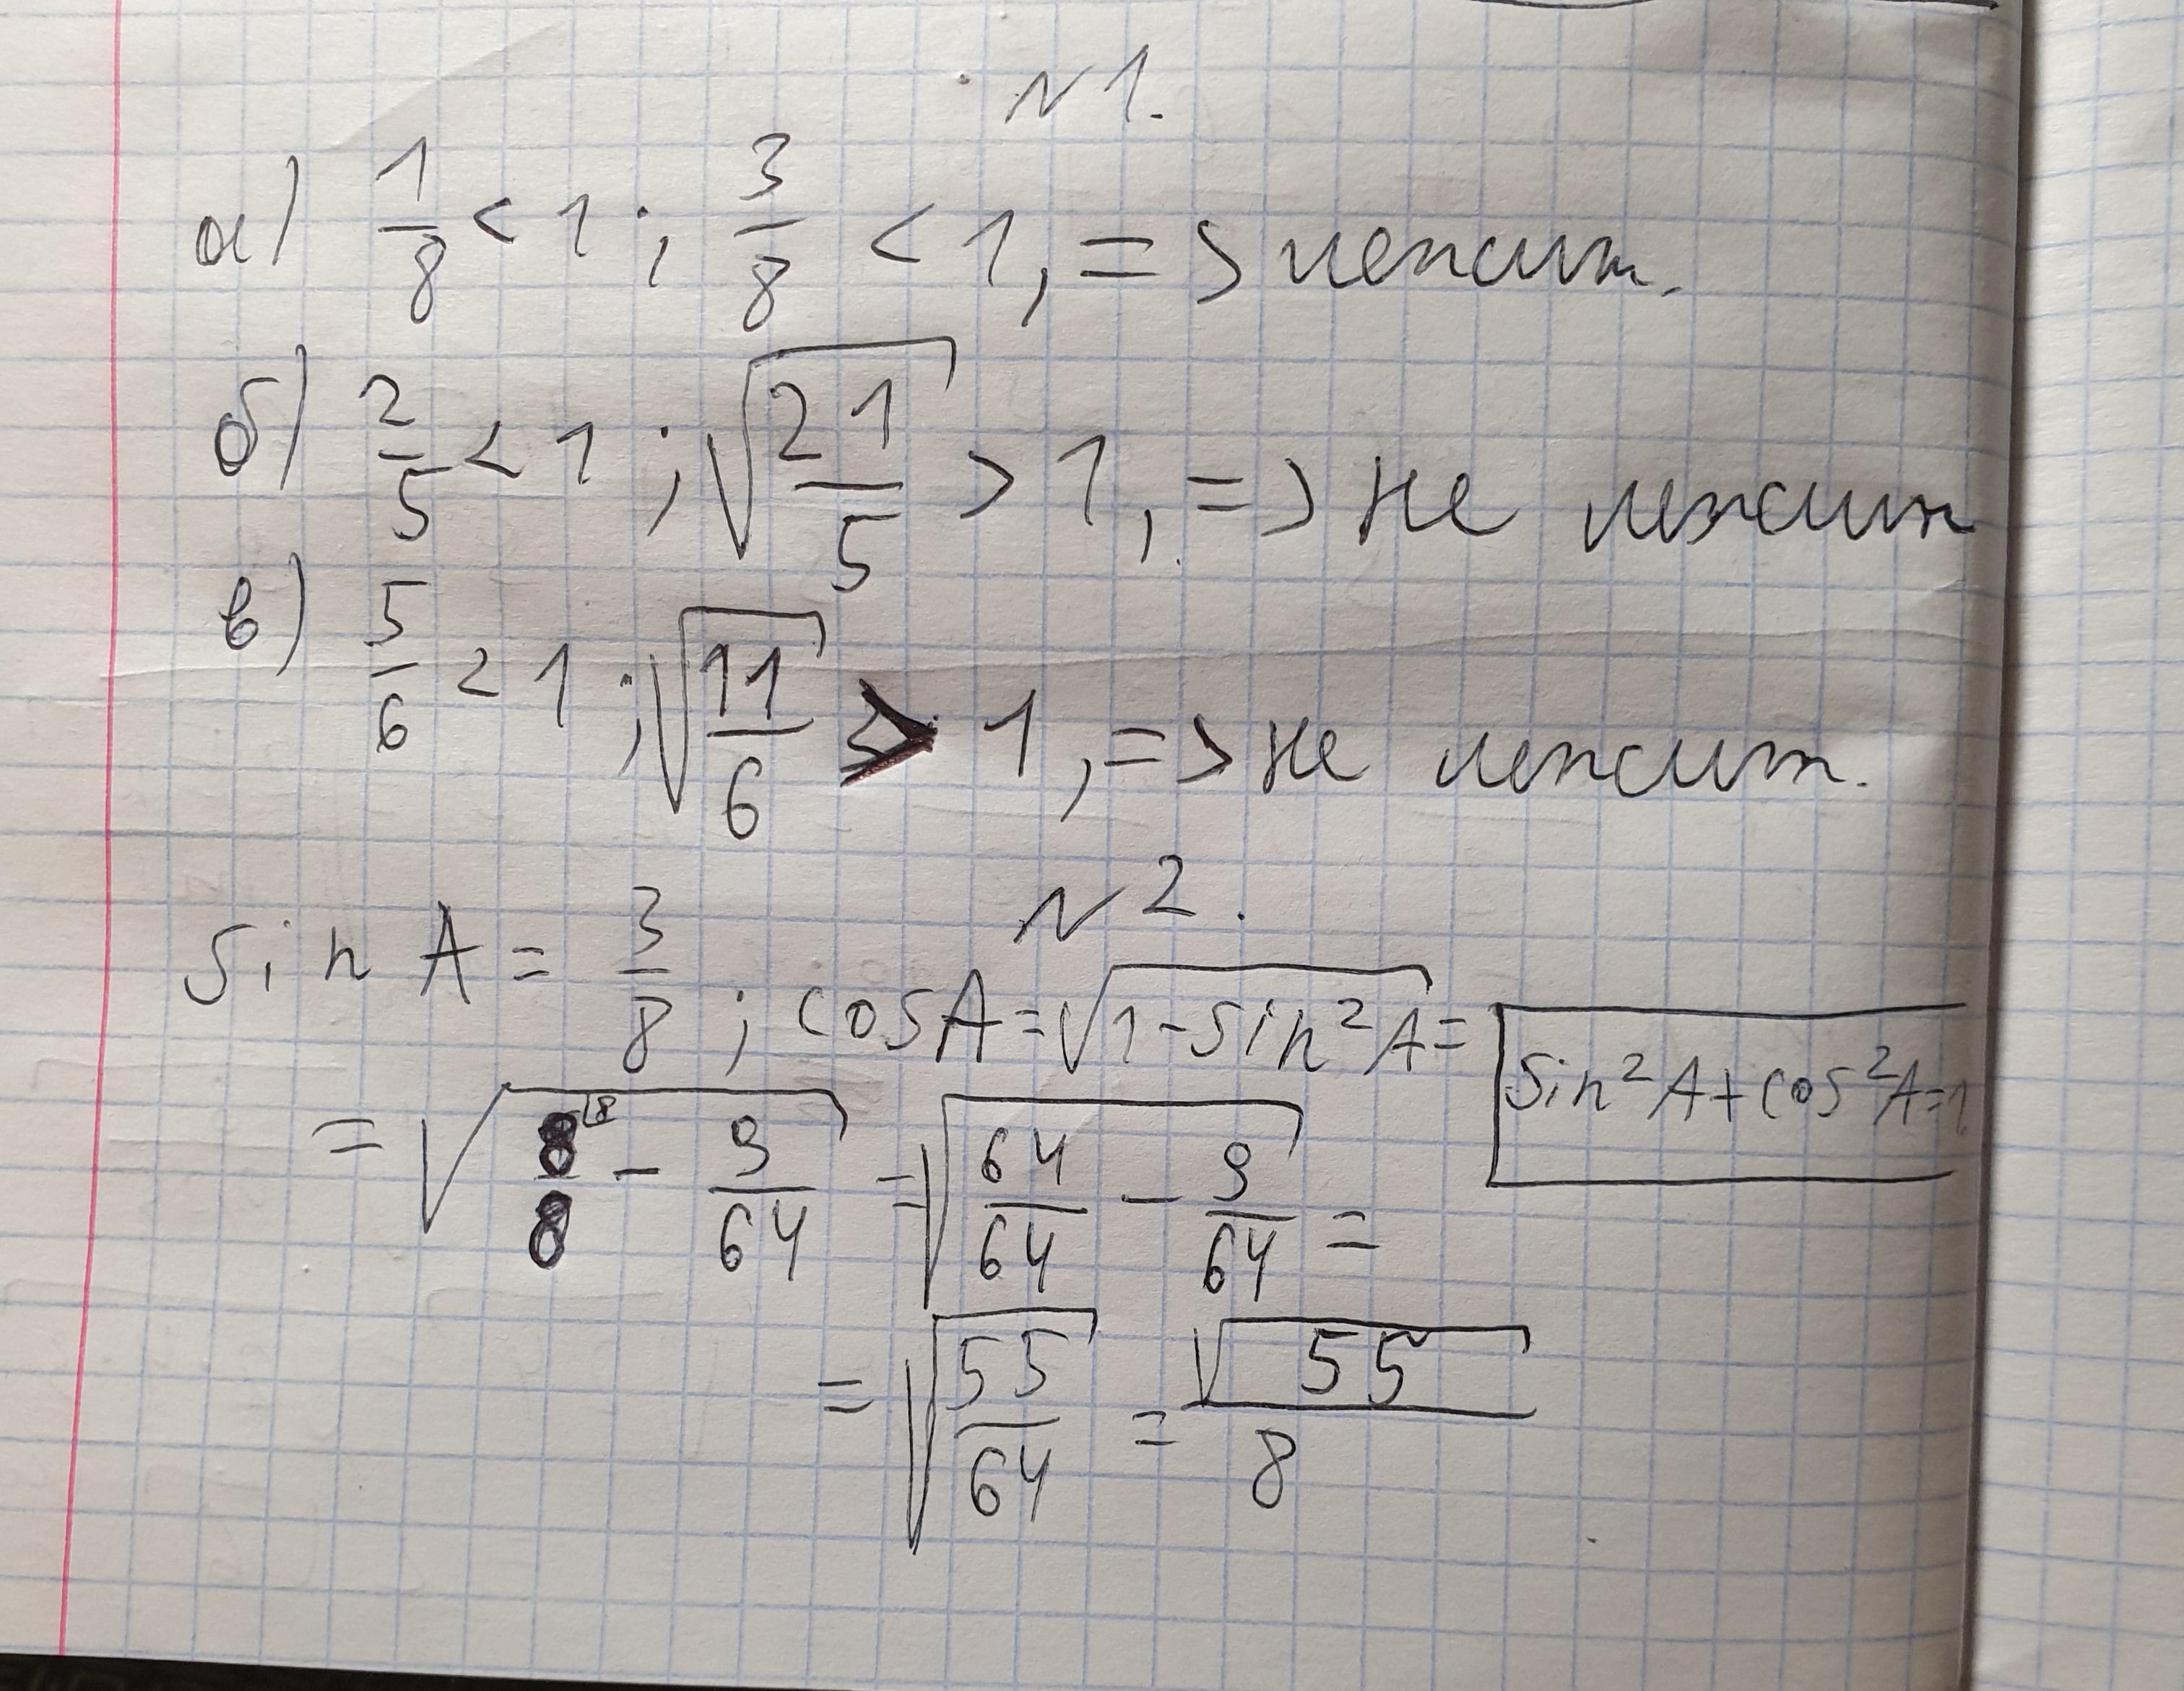 N 1.
а) 1/8 < 1; 3/8 < 1, => лежит.
б) 2/5 < 1; √(21/5) > 1, => не лежит
в) 5/6 < 1; √(11/6) > 1, => не лежит.
N 2.
sin A = 3/8; cos A = √(1 - sin²A) =
sin²A + cos²A = 1
= √(8/8 - 9/64) = √(64/64 - 9/64) =
= √(55/64) = √55/8